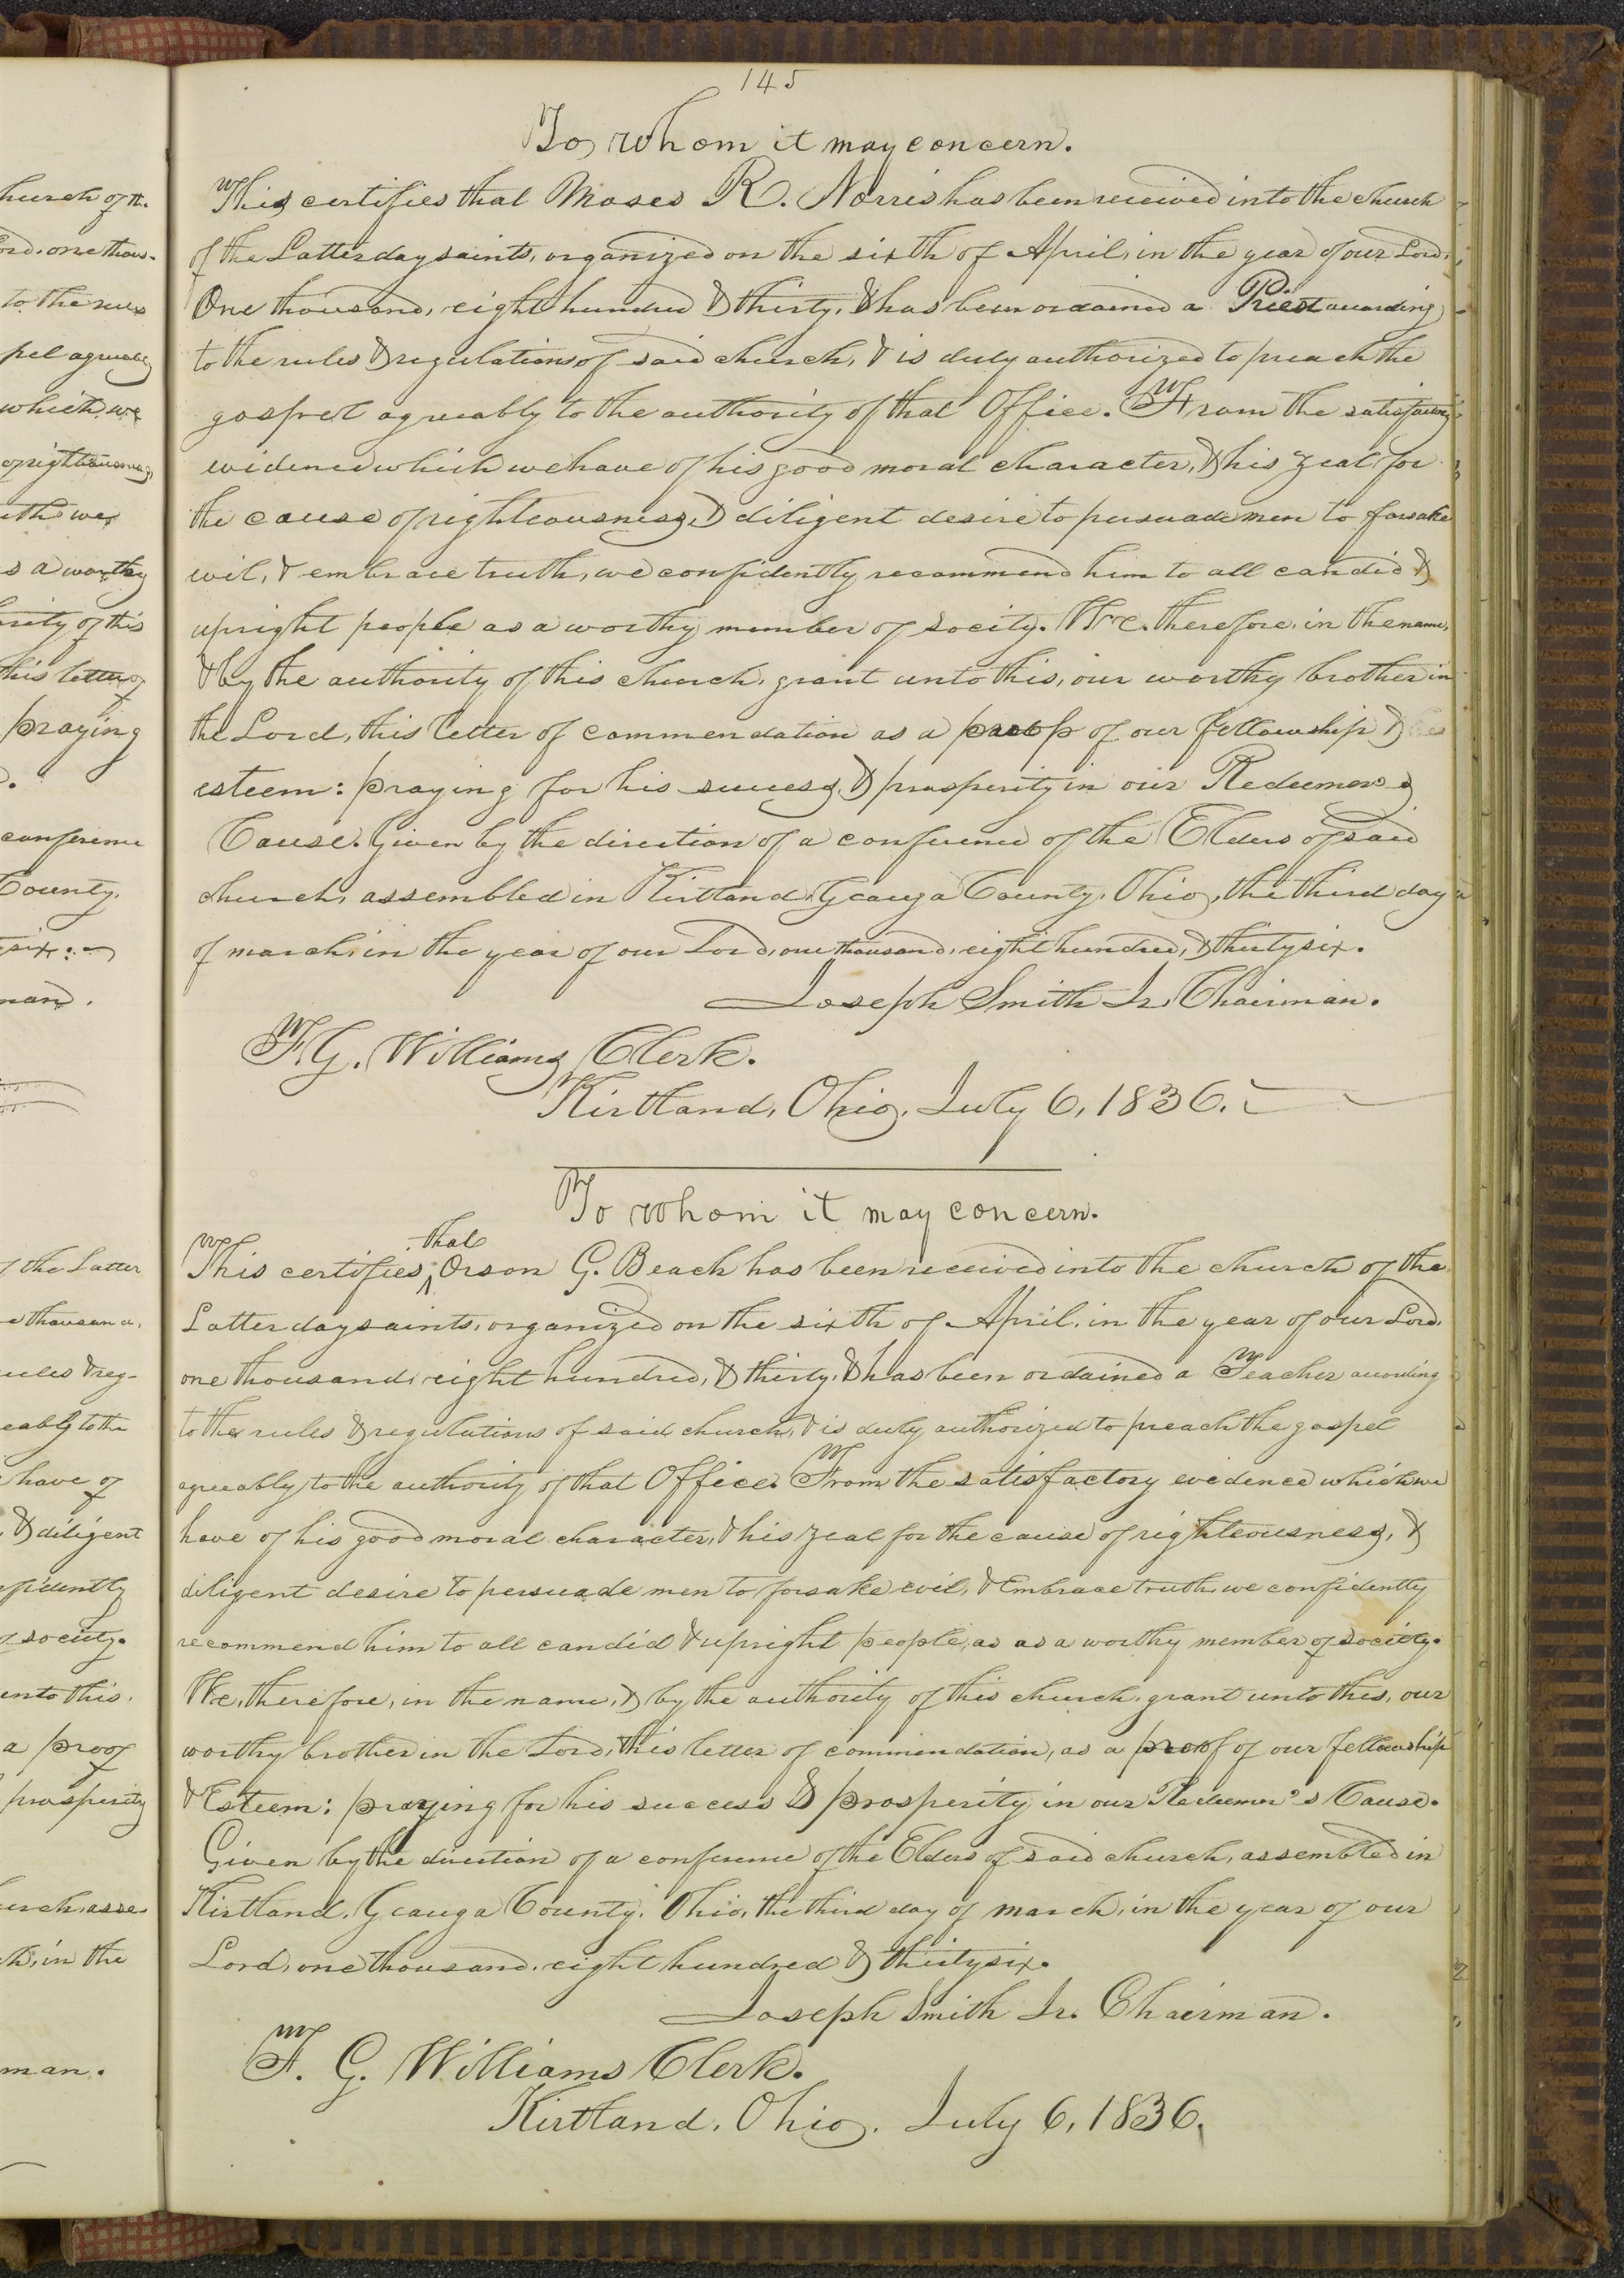 hurch of th.
ord, one thous-
to the rules
pel agreeably
which, we
of righteousness,
uth, we
s a worthy
rity of this
this letter of
praying
conference
County,
six:
man.
f the Latter
e thousand,
rules & reg-
eably to the
have of
, & diligent
nfidently
f society.
unto this,
a proof
prosperity
urch, asse-
h, in the
man.
145
To whom it may concern.
This certifies that Moses R. Norris has been received into the church
of the Latter day saints, organized on the sixth of April, in the year of our Lord,
One thousand, eight hundred & thirty, & has been ordained a Priest according
to the rules & regulations of said church, & is duly authorized to preach the
gospel agreeably to the authority of that Office. From the satisfactory
evidence which we have of his good moral character, & his zeal for
the cause of righteousness, & diligent desire to persuade men to forsake
evil, & embrace truth, we confidently recommend him to all candid &
upright people as a worthy member of socity. We, therefore, in the name,
& by the authority of this church, grant unto this, our worthy brother in
the Lord, this letter of commendation as a proof of our fellowship &
esteem: praying for his success, & prosperity in our Redeemers
Cause. Given by the direction of a conference of the Elders of said
church, assembled in Kirtland, Geauga County, Ohio, the third day
of march, in the year of our Lord, one thousand, eight hundred, & thirty six.
Joseph Smith Jr. Chairman.
F. G. Williams Clerk.
Kirtland, Ohio, July 6, 1836.
To whom it may concern.
that
This certifies ^ Orson G. Beach has been received into the church of the
Latter day saints, organized on the sixth of April, in the year of our Lord,
one thousand, eight hundred, & thirty, & has been ordained a Teacher according
to the rules & regulations of said church, & is duly authorized to preach the gospel
agreeably to the authority of that Office. From the satisfactory evidence which we
have of his good moral character, & his zeal for the cause of righteousness, &
diligent desire to persuade men to forsake evil, & Embrace truth, we confidently
recommend him to all candid & upright people, as as a worthy member of society.
We, therefore, in the name, & by the authority of this church, grant unto this, our
worthy brother in the Lord, this letter of commendation, as a proof of our fellowship
& Esteem: praying for his success & prosperity in our Redeemer's Cause.
Given by the direction of a conference of the Elders of said church, assembled in
Kirtland, Geauga County, Ohio, the third day of march, in the year of our
Lord, one thousand, eight hundred & thirty six.
Joseph Smith Jr. Chairman.
F. G. Williams Clerk.
Kirtland, Ohio, July 6, 1836.